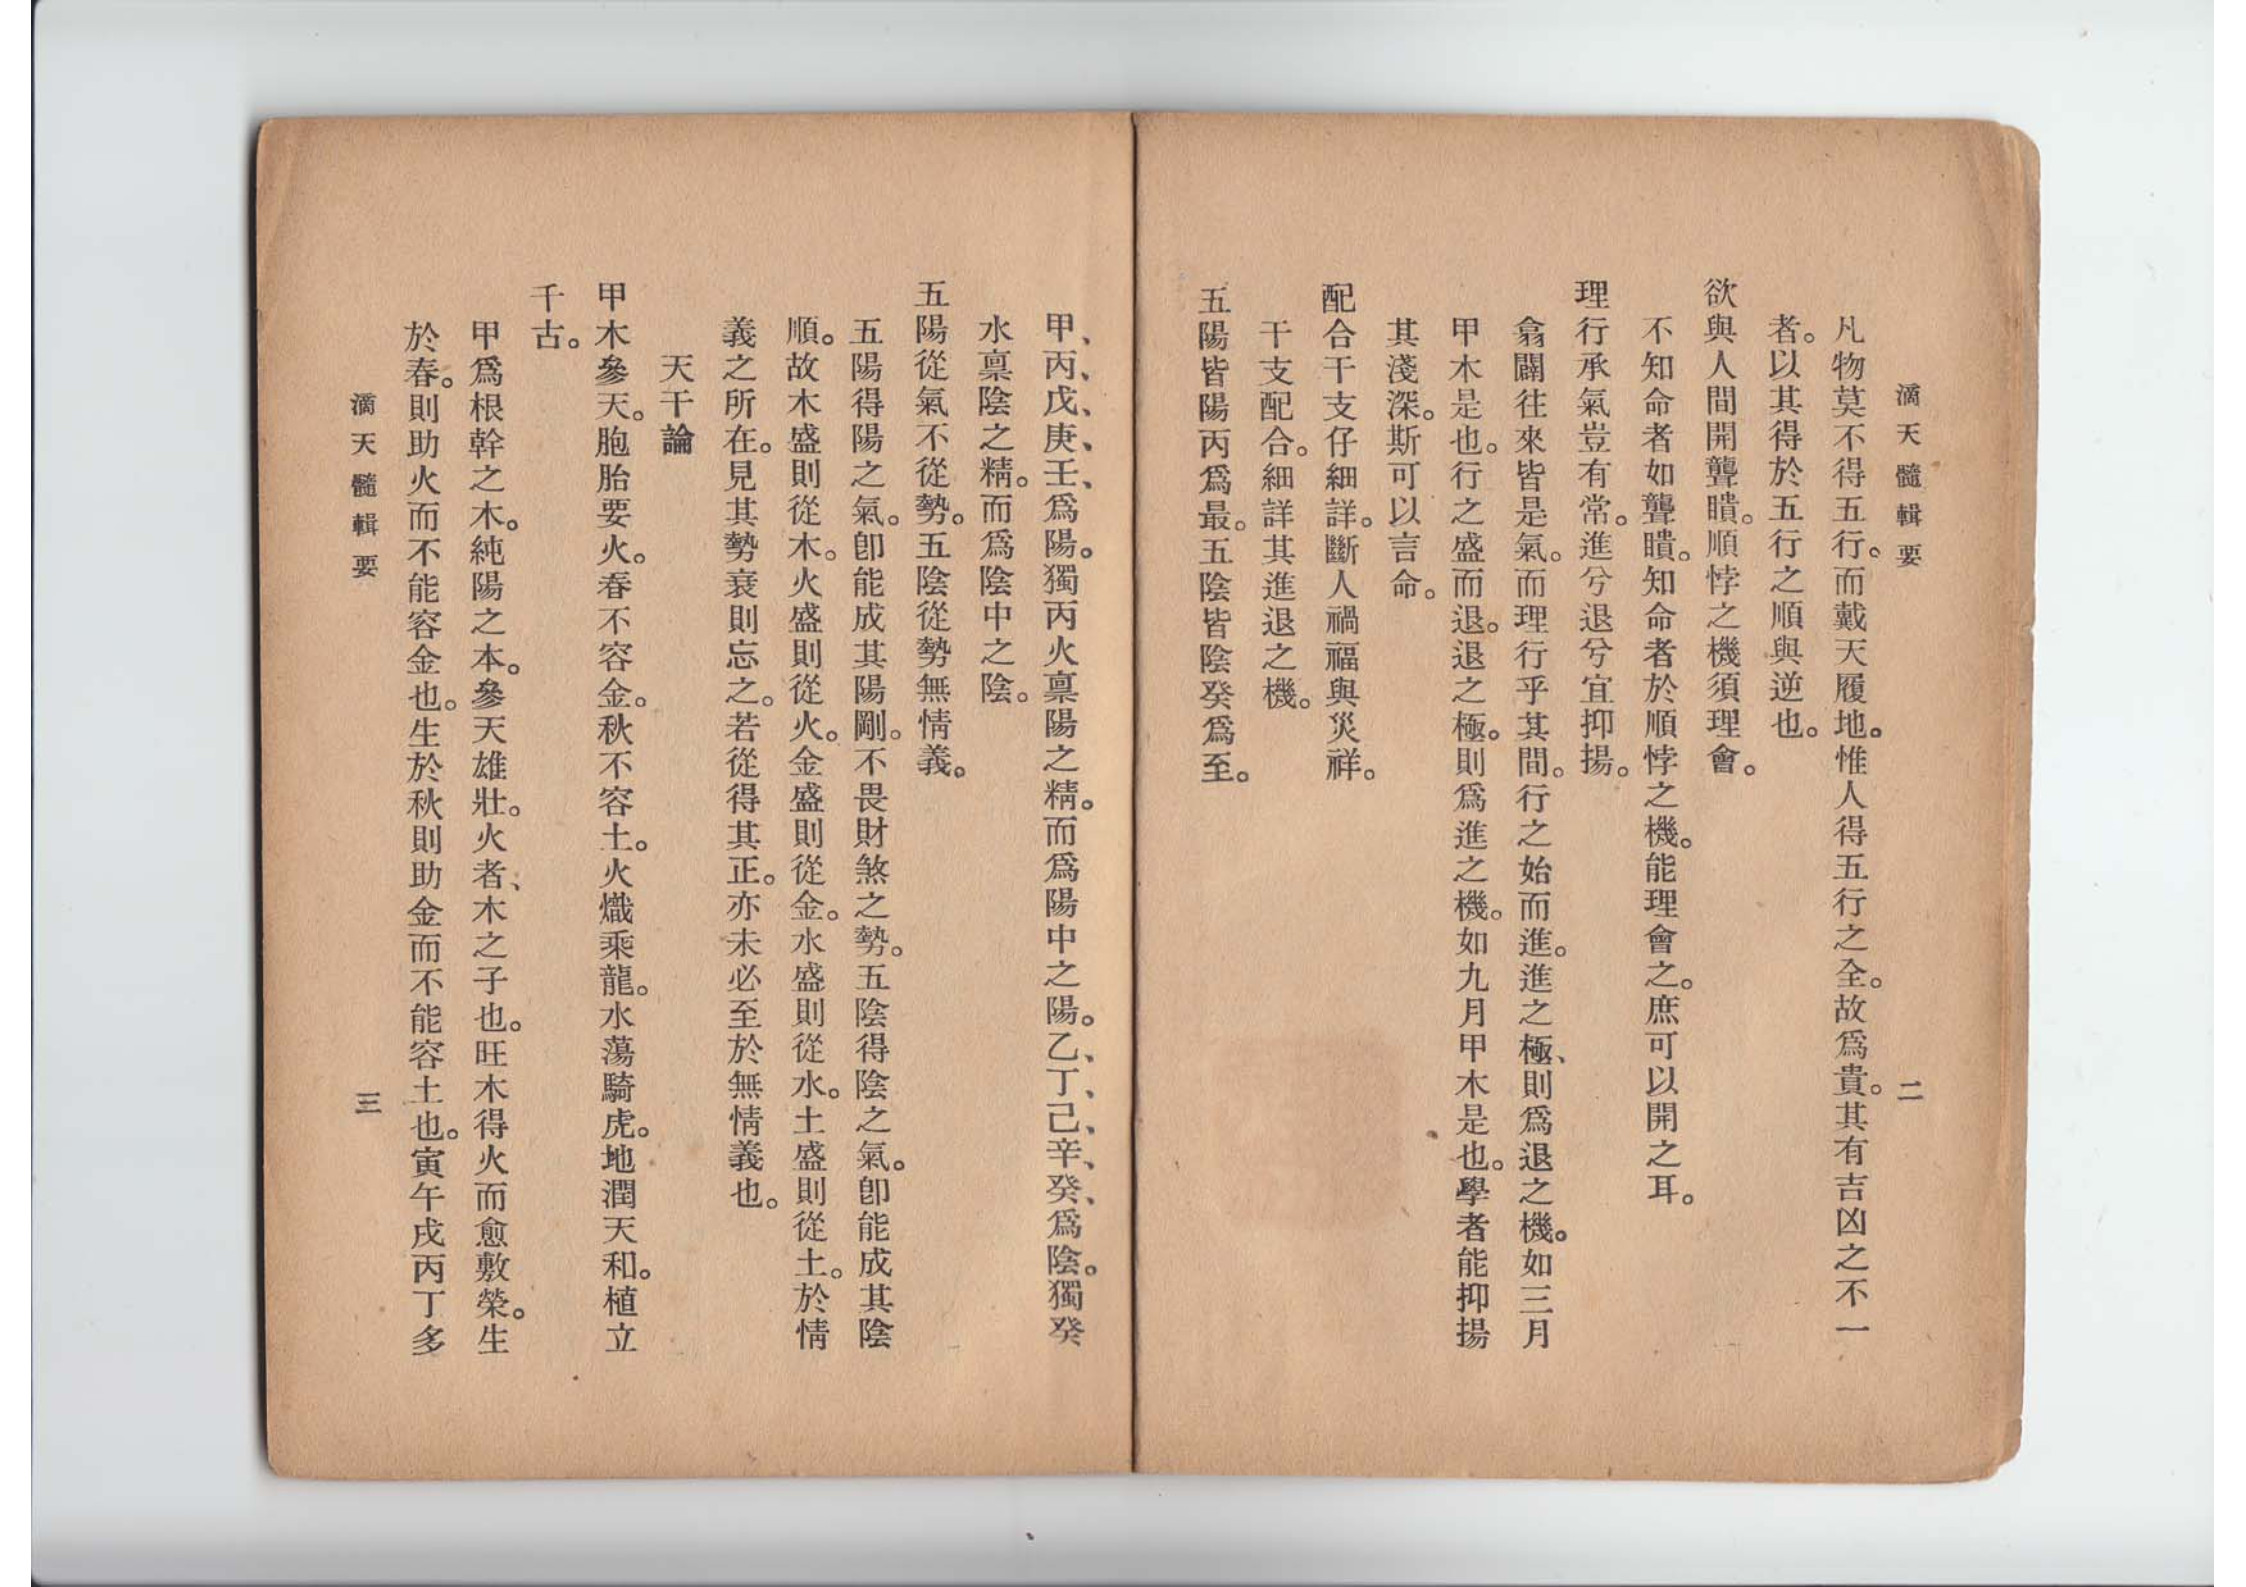 滴天髓輯要
二
凡物莫不得五行。而戴天履地。惟人得五行之全。故爲貴。其有吉凶之不一
者。以其得於五行之順與逆也。
欲與人間開聾瞶。順悖之機須理會。
不知命者如聾瞶。知命者於順悖之機。能理會之。庶可以開之耳。
理行承氣豈有常。進兮退兮宜抑揚。
翕闢往來皆是氣。而理行乎其間。行之始而進。進之極、則爲退之機。如三月
甲木是也。行之盛而退。退之極。則爲進之機。如九月甲木是也。學者能抑揚
其淺深。斯可以言命。
配合干支仔細詳。斷人禍福與災祥。
干支配合。細詳其進退之機。
五陽皆陽丙爲最。五陰皆陰癸爲至。
甲、丙、戊、庚、壬、爲陽。獨丙火稟陽之精。而爲陽中之陽。乙、丁、己、辛、癸、爲陰。獨癸
水稟陰之精。而爲陰中之陰。
五陽從氣不從勢。五陰從勢無情義。
五陽得陽之氣。卽能成其陽剛。不畏財煞之勢。五陰得陰之氣。卽能成其陰
順。故木盛則從木。火盛則從火。金盛則從金。水盛則從水。土盛則從土。於情
義之所在。見其勢衰則忘之。若從得其正。亦未必至於無情義也。
天干論
甲木參天。胞胎要火。春不容金。秋不容土。火熾乘龍。水蕩騎虎。地潤天和。植立
千古。
甲爲根幹之木。純陽之本。參天雄壯。火者、木之子也。旺木得火而愈敷榮。生
於春。則助火而不能容金也。生於秋則助金而不能容土也。寅午戌丙丁多
滴天髓輯要
三